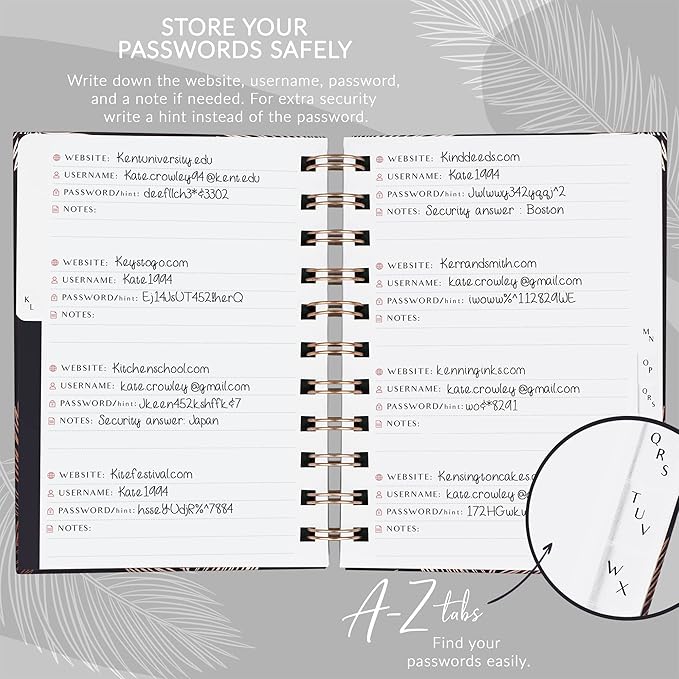 STORE YOUR
PASSWORDS SAFELY
Write down the website, username, password,
and a note if needed. For extra security
write a hint instead of the password.
WEBSITE: Kentuniversity.edu
USERNAME: Kate.crowley94@kent.edu
PASSWORD/hint: deefllch3*¢3302
NOTES:
WEBSITE: Keystogo.com
USERNAME: Kate1994
PASSWORD/hint: Ej14JsUT452BherQ
NOTES:
WEBSITE: Kitchenschool.com
USERNAME: kate.crowley@gmail.com
PASSWORD/hint: Jkeen452kshffk¢7
NOTES: Security answer: Japan
WEBSITE: Kitefestival.com
USERNAME: Kate1994
PASSWORD/hint: hsseYUdjR%^7884
NOTES:
K
L
WEBSITE: Kinddeeds.com
USERNAME: Kate1994
PASSWORD/hint: Jwlwwy342yqqj^2
NOTES: Security answer : Boston
WEBSITE: Kerrandsmith.com
USERNAME: kate.crowley@gmail.com
PASSWORD/hint: iwoww%^112829WE
NOTES:
WEBSITE: kenninginks.com
USERNAME: kate.crowley@gmail.com
PASSWORD/hint: wo¢*8291
NOTES:
WEBSITE: Kensingtoncakes.c
USERNAME: kate.crowley@g
PASSWORD/hint: 172HGwkw
NOTES:
MN
OP
QRS
QRS
TUV
WX
A-Z tabs
Find your
passwords easily.